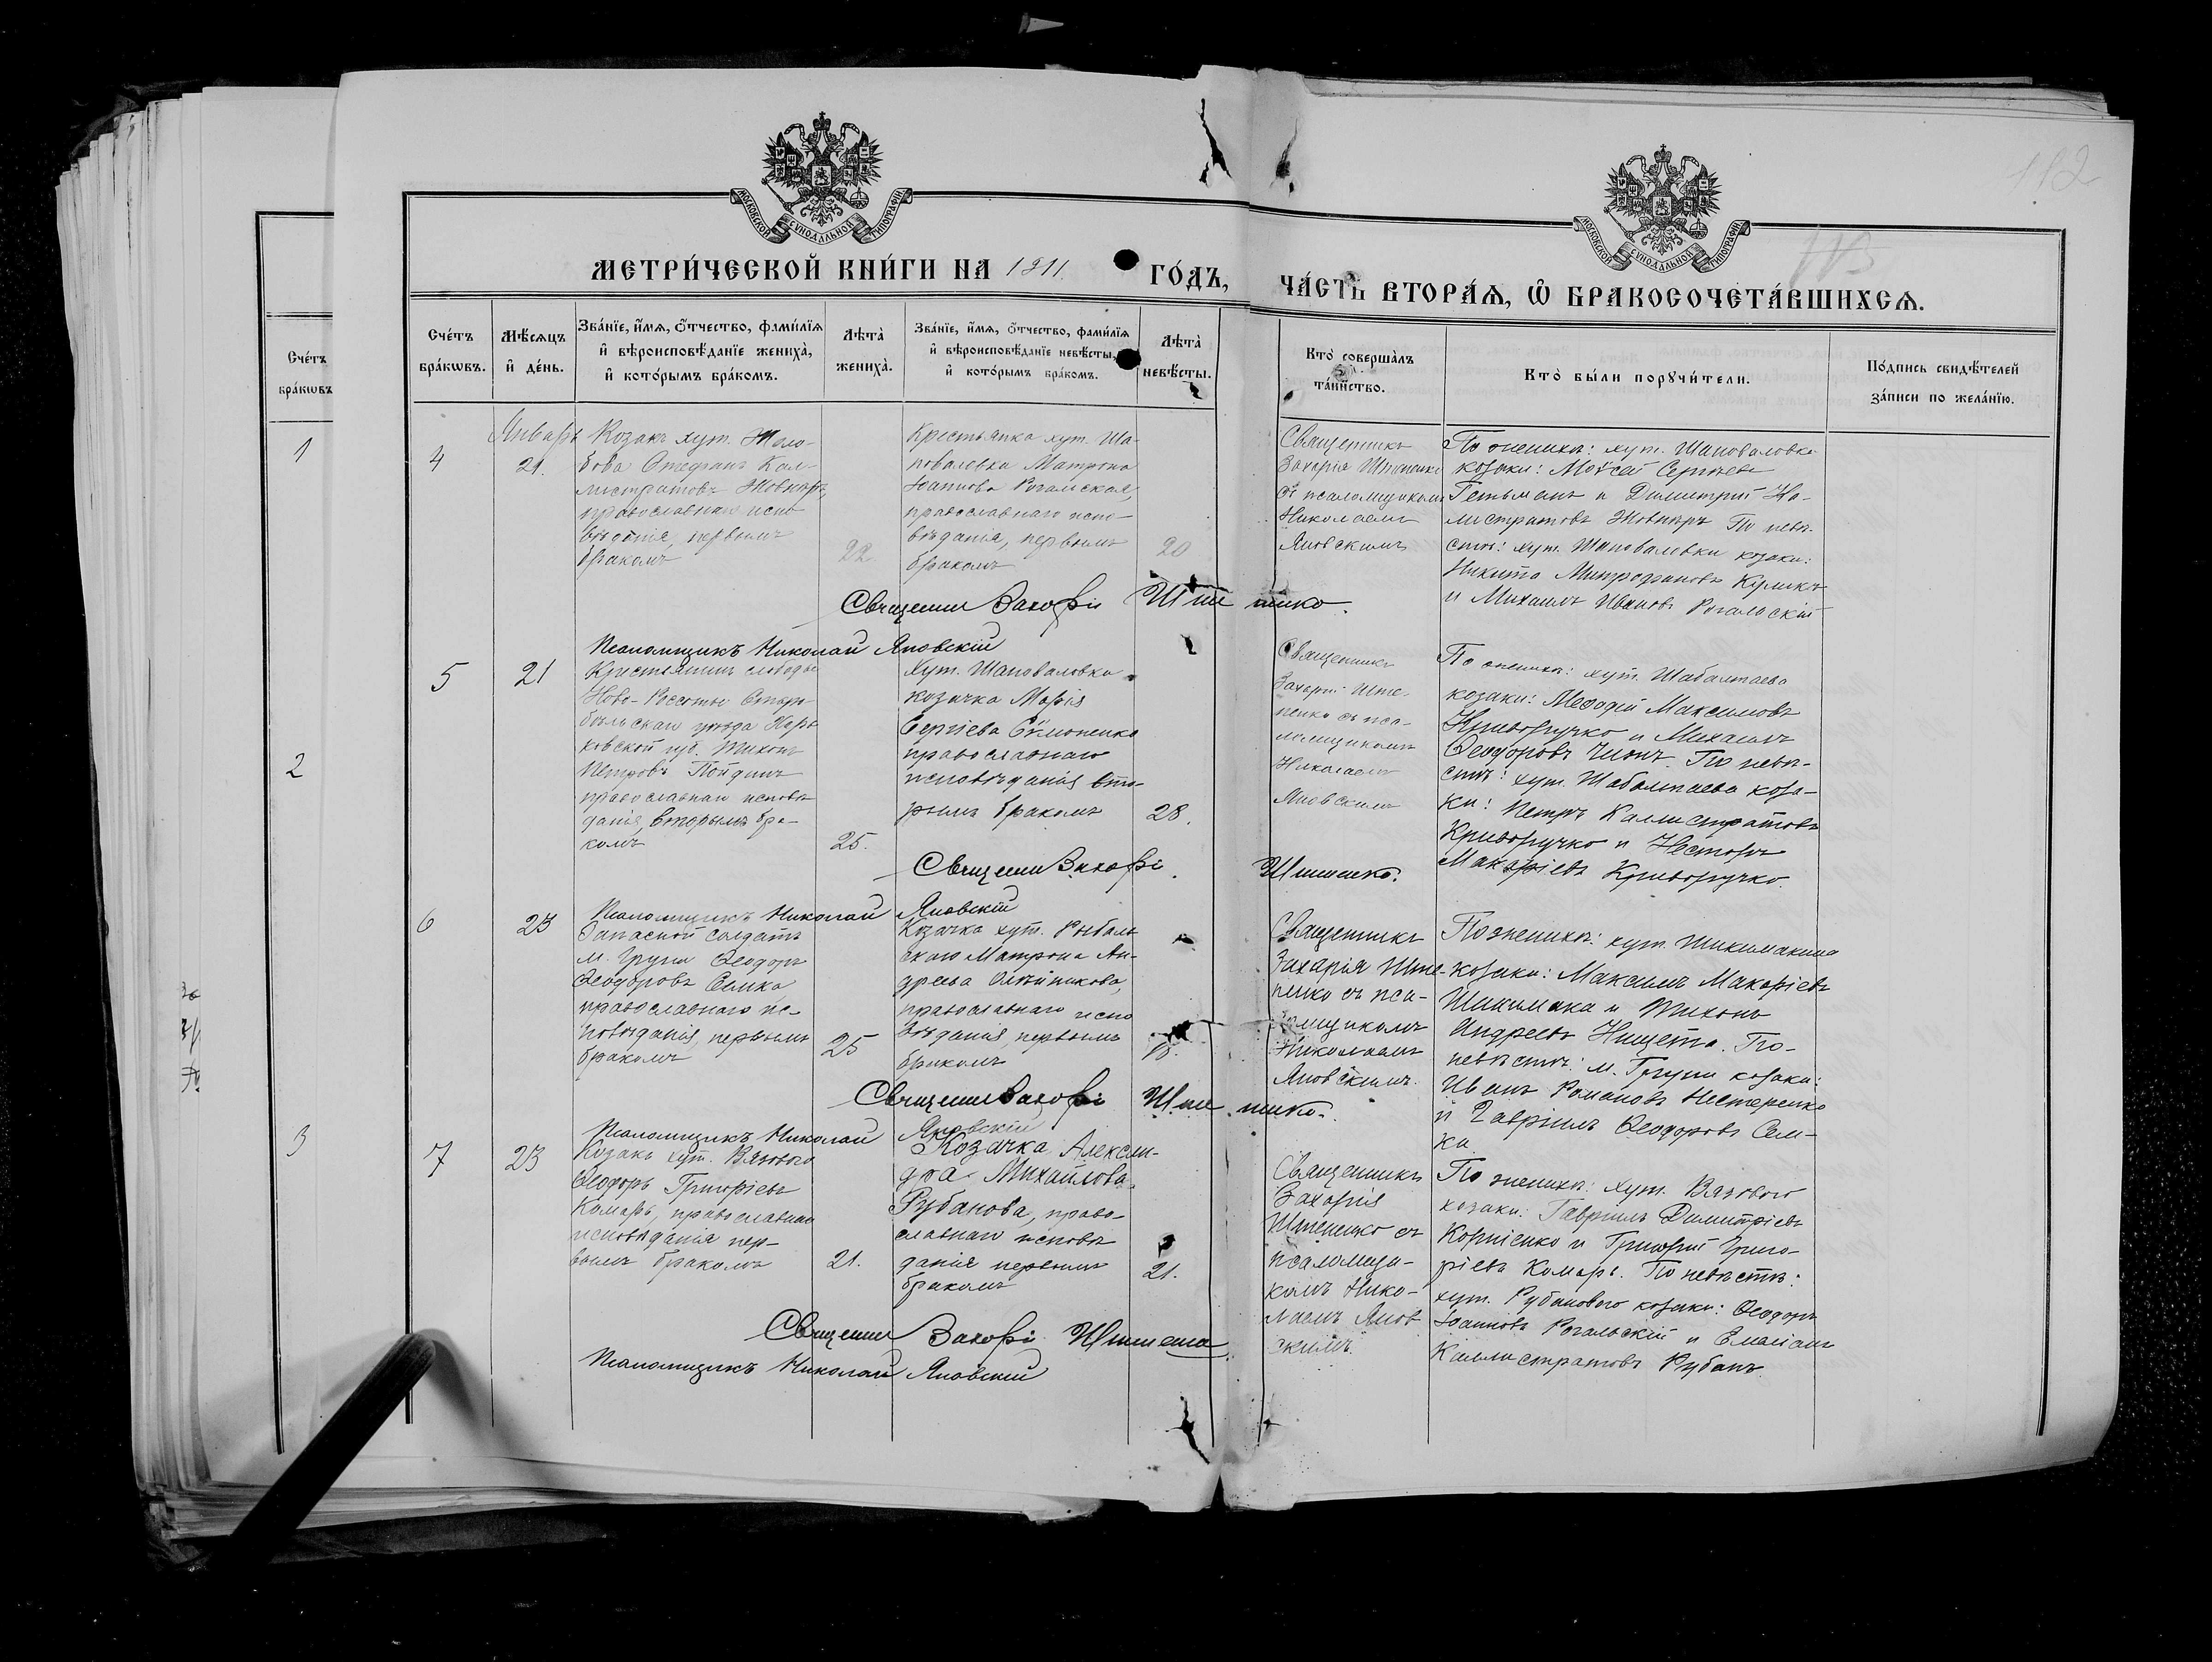 112
113
МОСКОВСКОЙ СѴНОДАЛЬНОЙ ТИПОГРАФІИ
МОСКОВСКОЙ СѴНОДАЛЬНОЙ ТИПОГРАФІИ
МЕТРИ́ЧЕСКОЙ КНИ́ГИ НА 1911 ГО́ДЪ,
ЧА́СТЬ ВТОРА́Ѧ, Ѿ БРАКОСОЧЕТА́ВШИХСѦ.
Сче́тъ
бра́кωвъ
1
2
3
Сче́тъ
бра́кωвъ.
Мѣ́сѧцъ
и҆ де́нь.
Зва́нїе, и҆́мѧ, ѻ҆́тчество, фами́лїѧ
и҆ вѣроисповѣ́данїе жениха̀,
и҆ кото́рымъ бра́комъ.
Лѣта̀
жениха̀.
Зва́нїе, и҆́мѧ, ѻ҆́тчество, фами́лїѧ
и҆ вѣроисповѣ́данїе невѣ́сты,
и҆ кото́рымъ бра́комъ.
Лѣта̀
невѣ́сты.
Кто̀ соверша́лъ
та́инство.
Кто̀ бы́ли порꙋчи́тели.
По́дпись свидѣ́телей
за́писи по жела́нїю.
4
Январь
21.
Козакъ хут. Жело-
бова Стефанъ Кал-
листратовъ Жовниръ,
православнаго испо-
вѣданія, первымъ
бракомъ
22.
Крестьянка хут. Ша-
поваловки Матрона
Іоаннова Рогальская,
православнаго испо-
вѣданія, первымъ
бракомъ
20
Священникъ
Захарія Штепенко
съ псаломщикомъ
Николаемъ
Яновскимъ
По жениху: хут. Шаповаловки
козаки: Моѵсей Сергіевъ
Гетьманъ и Димитрій Ка-
листратовъ Жовниръ По невѣ-
стѣ: хут. Шаповаловки козаки:
Никита Митрофановъ Куликъ
и Михаилъ Ивановъ Рогальскій
Священникъ Захарій Штепенко.
Псаломщикъ Николай Яновскій
5
21
Крестьянинъ слободы
Ново-Россоши Старо-
бѣльскаго уѣзда Харь-
ковской губ. Тихонъ
Петровъ
православнаго исповѣ-
данія, вторымъ бра-
комъ
25.
Хут. Шаповаловки
козачка Марія
Сергіева Симоненко
православнаго
исповѣданія вто-
рымъ бракомъ
28.
Священникъ
Захарій Ште-
пенко съ пса-
ломщикомъ
Николаемъ
Яновскимъ
По жениху: хут. Шабалтаева
козаки: Меѳодій Максимовъ
Криворучко и Михаилъ
Ѳеодоровъ По невѣ-
стѣ: хут. Шабалтаева коза-
ки: Петръ Каллистратовъ
Криворучко и Несторъ
Макаріевъ Криворучко.
Священникъ Захарій Штепенко.
Псаломщикъ Николай Яновскій
6
23
Запасной солдатъ
м. Груни Ѳеодоръ
Ѳеодоровъ Семка
православнаго ис-
повѣданія, первымъ
бракомъ
25
Козачка хут. Рыбаль-
скаго Матрона Ан-
дреева Олейникова,
православнаго испо-
вѣданія, первымъ
бракомъ
Священникъ
Захарія Ште-
пенко съ пса-
ломщикомъ
Николаемъ
Яновскимъ.
По жениху: хут. Шикимакина
козаки: Максимъ Макаріевъ
Шикимака и Тихонъ
Андреевъ Нищета. По-
невѣстѣ: м. Груни козаки:
Иванъ Романовъ Нестеренко
и Гавріилъ Ѳеодоровъ Сем-
ка
Священникъ Захарій Штепенко.
Псаломщикъ Николай Яновскій
7
23
Козакъ хут. Вязоваго
Ѳеодоръ Григоріевъ
Комаръ, православнаго
исповѣданія пер-
вымъ бракомъ
21.
Козачка Алексан-
дра Михайлова
Рубанова, право-
славнаго исповѣ-
данія первымъ
бракомъ
21.
Священникъ
Захарія
Штепенко съ
псаломщи-
комъ Нико-
лаемъ Янов-
скимъ.
По жениху: хут. Вязоваго
козаки: Гавріилъ Димитріевъ
Корніенко и Григорій Григо-
ріевъ Комаръ. По невѣстѣ:
хут. Рубановаго козаки: Ѳеодоръ
Іоанновъ Рогальскій и Емаліанъ
Каллистратовъ Рубанъ.
Священникъ Захарій Штепенко
Псаломщикъ Николай Яновскій